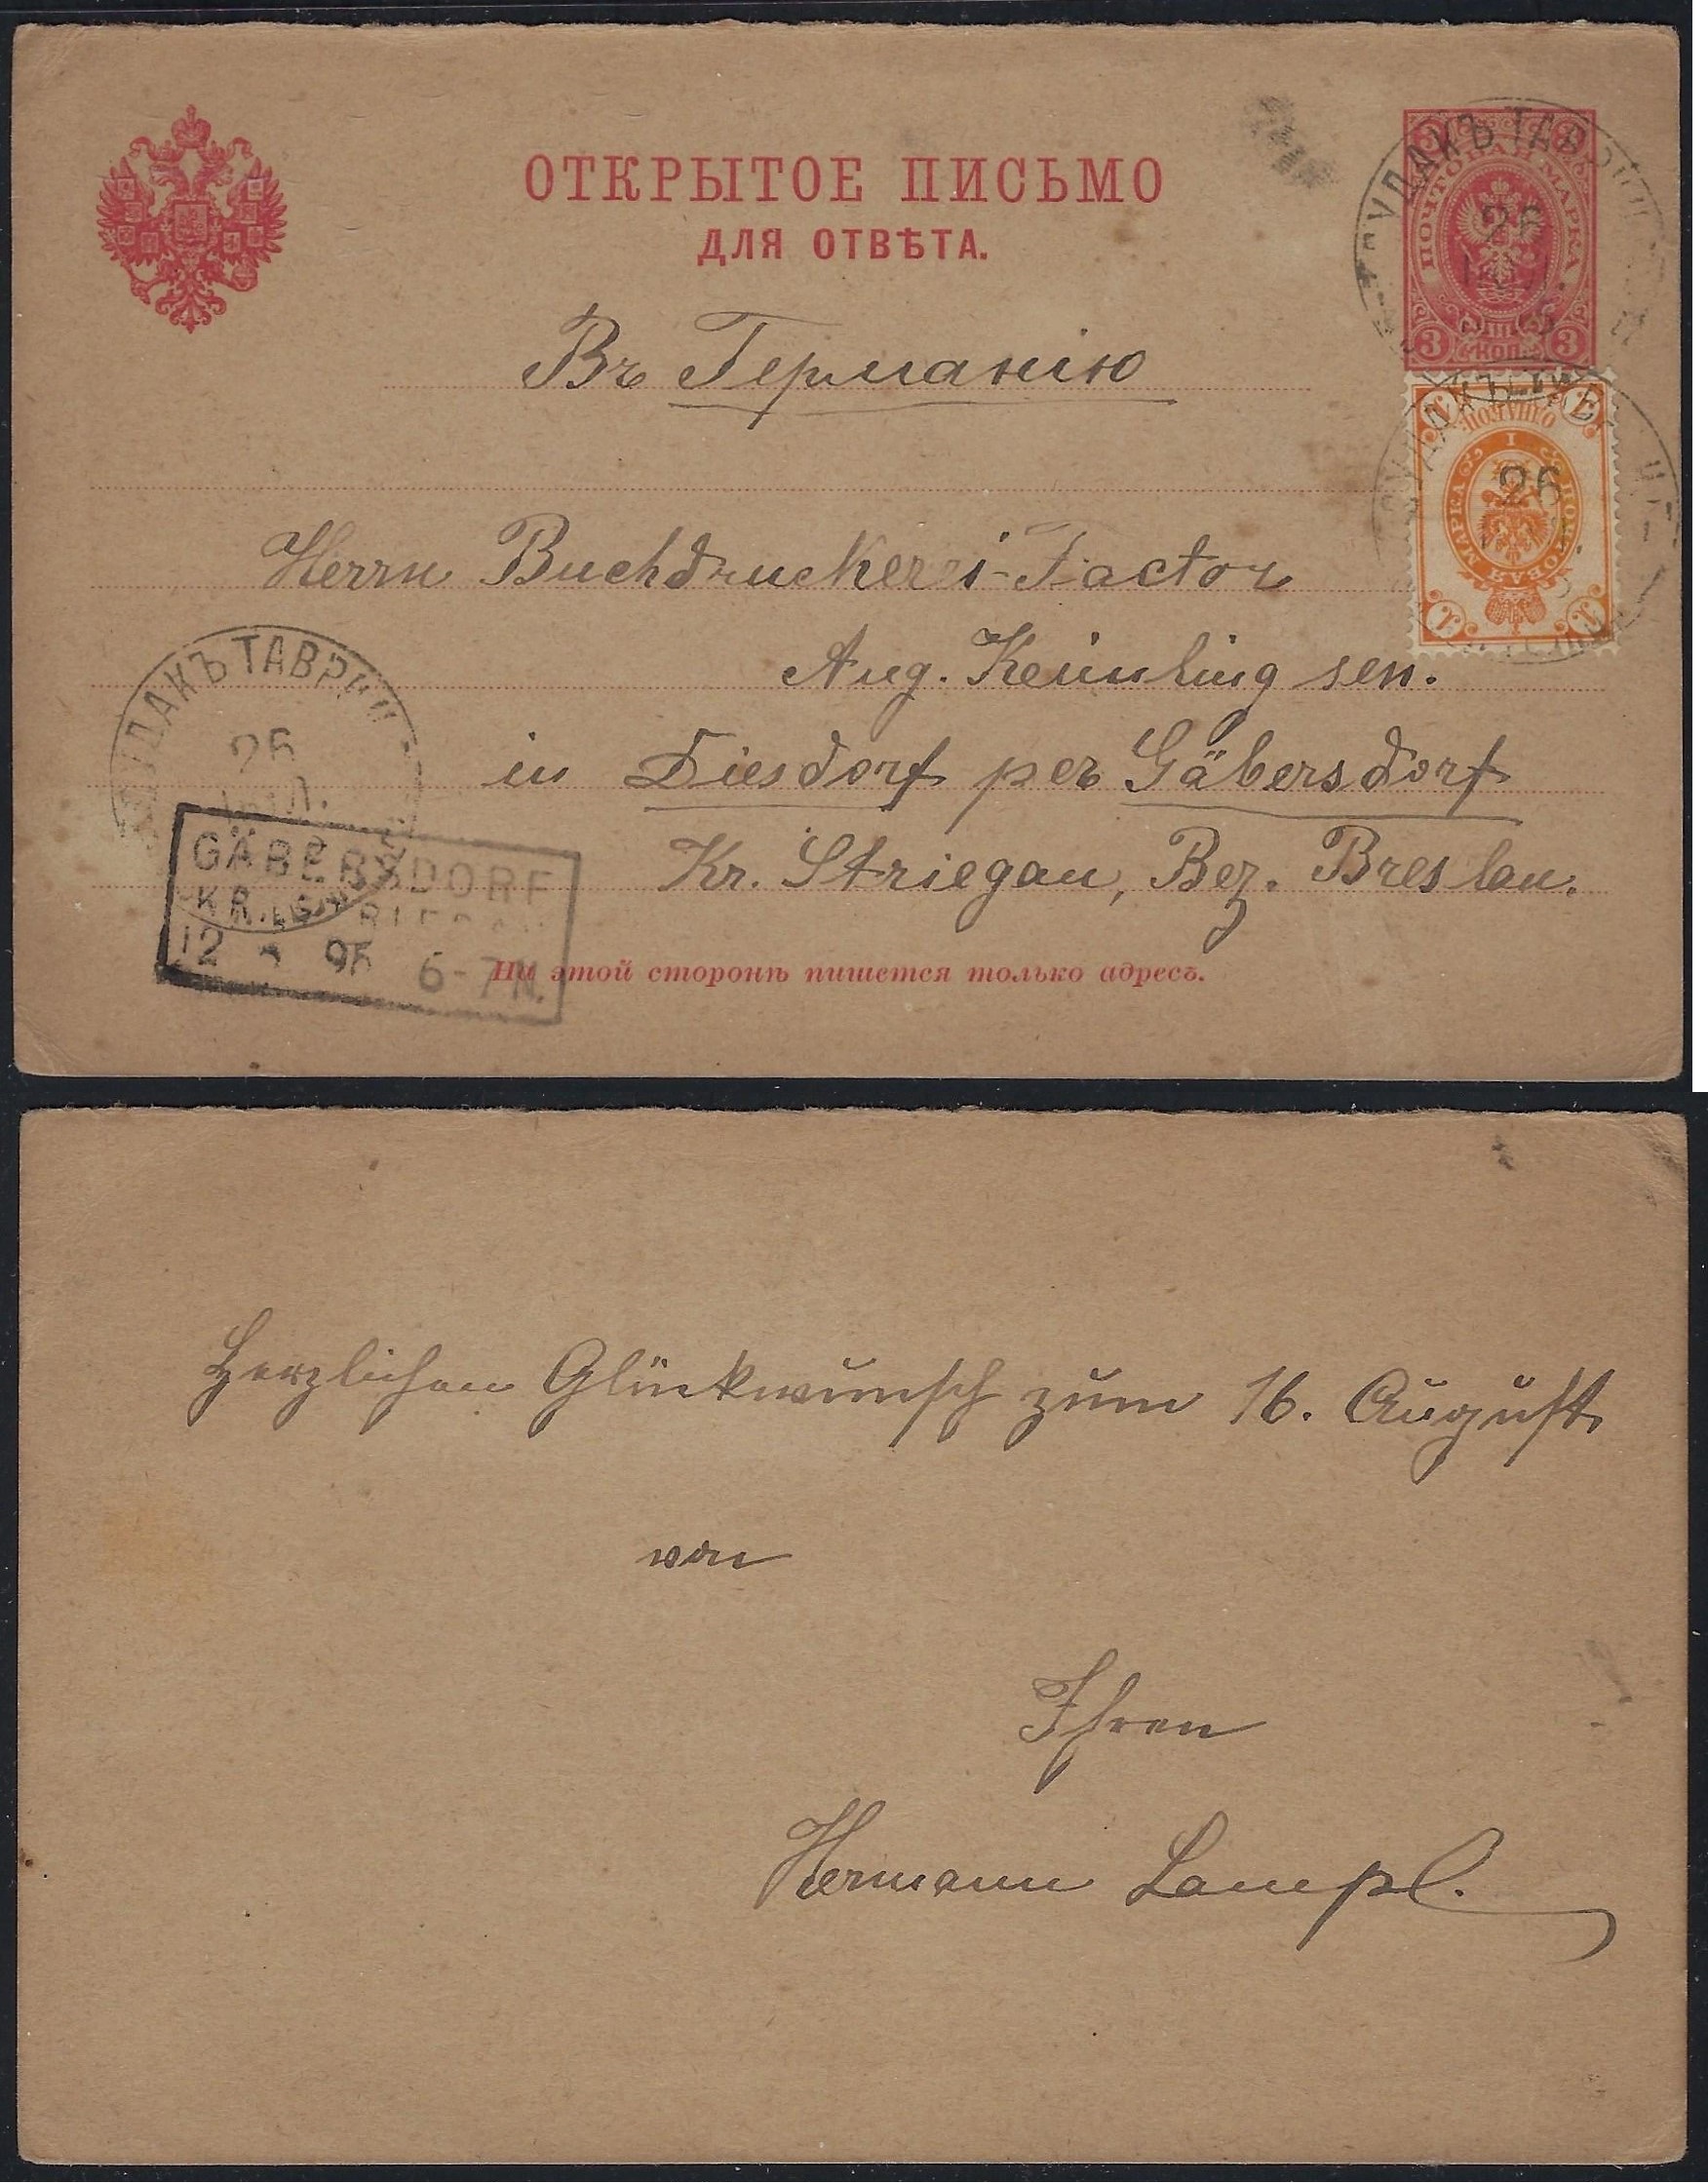 ОТКРЫТОЕ ПИСЬМО
ДЛЯ ОТВѢТА.
ПОЧТОВАЯ МАРКА
3 3
КОП.
Въ Германію
СУДАКЪ ТАВРИЧ
26
ПОЧТОВАЯ МАРКА
1
26
Herrn Buchdruckerei-Factor
Aug. sen.
in Diesdorf per Gäbersdorf
Kr. Striegau, Bez. Breslau.
СУДАКЪ ТАВРИЧ
26
ІЮЛ.
GÄBERSDORF
KR. STRIEGAU
12 95 6-7N.
На этой сторонѣ пишется только адресъ.
Herzlichen Glückwunsch zum 16. August
von
Ihren
Hermann Lampl.